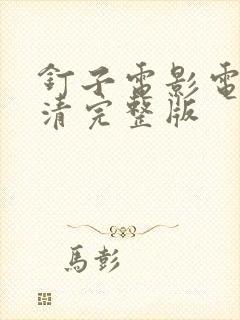 釘子電影電
清完整版
馬彭